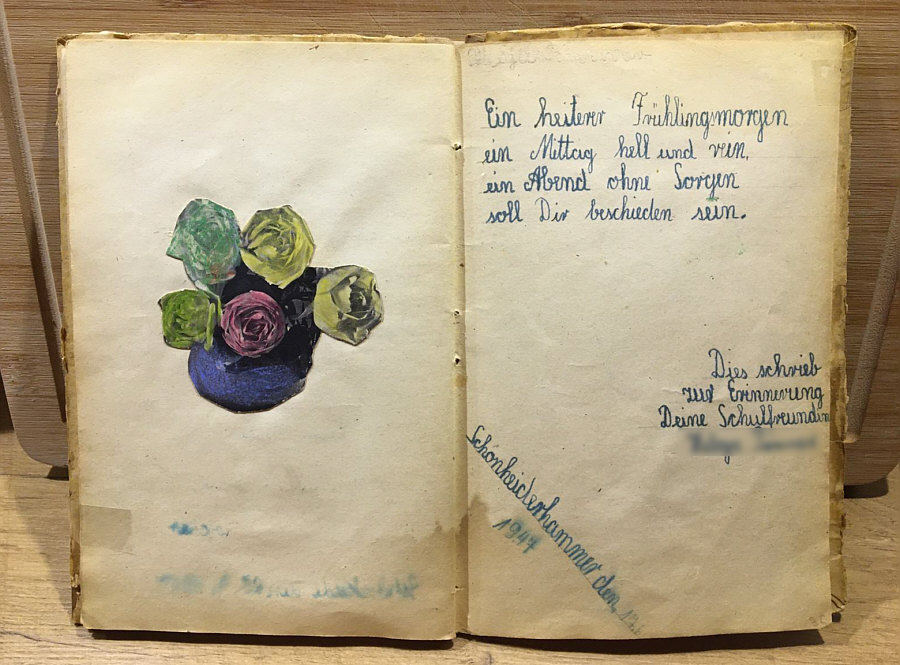 Ein heiterer Frühlingsmorgen
ein Mittag hell und rein,
ein Abend ohne Sorgen
soll Dir beschieden sein.
Dies schrieb
zur Erinnerung
Deine Schulfreundin
Schönheiderhammer den,
1947